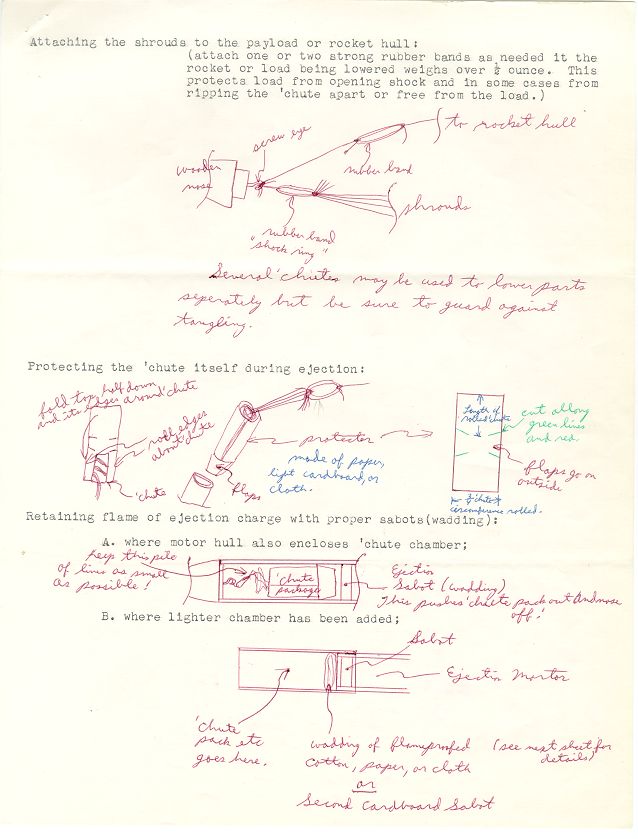 Attaching the shrouds to the payload or rocket hull:
(attach one or two strong rubber bands as needed it the
rocket or load being lowered weighs over ½ ounce. This
protects load from opening shock and in some cases from
ripping the 'chute apart or free from the load.)
to rocket hull
screw eye
rubber band
wooden
nose
shrouds
rubber band
"shock ring"
Several 'chutes may be used to lower parts
seperately but be sure to guard against
tangling.
Protecting the 'chute itself during ejection:
fold top half down
and its edges around 'chute
roll edges
about 'chute
'chute
protector
made of paper,
light cardboard, or
cloth.
flaps
Length of
rolled 'chute
cut along
green lines
and red.
flaps go on
outside
'chute
circumference rolled.
Retaining flame of ejection charge with proper sabots(wadding):
A. where motor hull also encloses 'chute chamber;
Keep this pile
of lines as small
as possible!
'chute
package
Ejection
Sabot (wadding)
This pushes 'chute pack out and nose
off!
B. where lighter chamber has been added;
Sabot
Ejection Mortor
'chute
pack etc
goes here.
wadding of flameproofed
cotton, paper, or cloth
or
Second Cardboard Sabot
(see next sheet for
details)